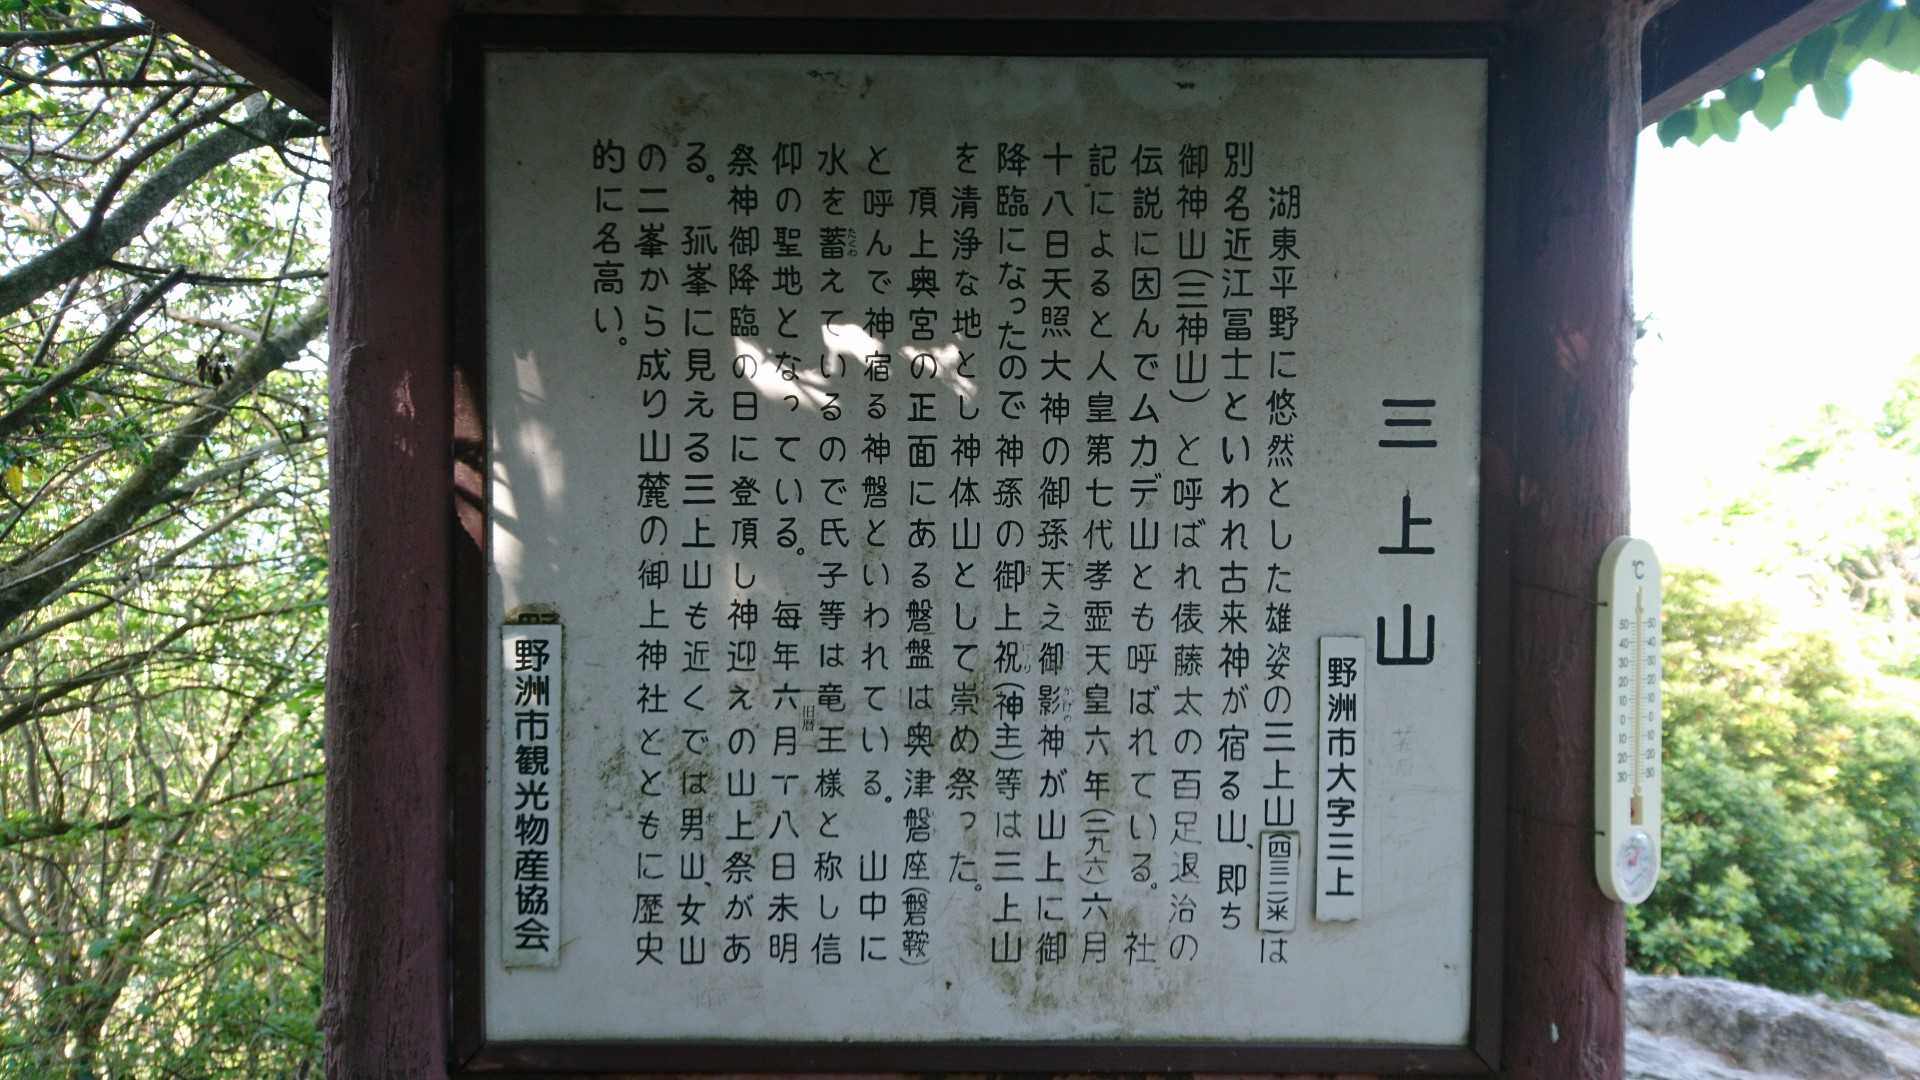 三上山
野洲市大字三上
湖東平野に悠然とした雄姿の三上山(四三二米)は
別名近江冨士といわれ古来神が宿る山、即ち
御神山(三神山)と呼ばれ俵藤太の百足退治の
伝説に因んでムカデ山とも呼ばれている。社
記によると人皇第七代孝霊天皇六年(二九六)六月
十八日天照大神の御孫天之御影神が山上に御
降臨になったので神孫の御上祝(神主)等は三上山
を清浄な地とし神体山として崇め祭った。
頂上奥宮の正面にある磐盤は奥津磐座(磐鞍)
と呼んで神宿る神磐といわれている。山中に
水を蓄えているので氏子等は竜王様と称し信
仰の聖地となっている。毎年六月十八日未明
旧暦
祭神御降臨の日に登頂し神迎えの山上祭があ
る。孤峯に見える三上山も近くでは男山、女山
の二峯から成り山麓の御上神社とともに歴史
的に名高い。
野洲市観光物産協会
℃
50 50
40 40
30 30
20 20
10 10
0 0
10 10
20 20
30 30